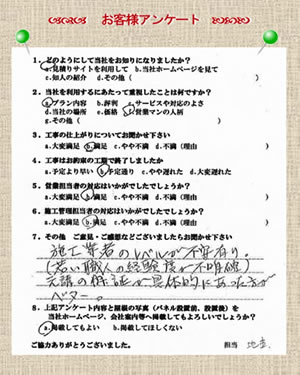 お客様アンケート
1．どのようにして当社をお知りになりましたか？
a.見積りサイトを利用して　b.当社ホームページを見て
c.知人の紹介　d.その他（　　　）
2．当社を利用するにあたって重視したことは何ですか？
a.プラン内容　b.評判　c.サービスや対応のよさ
d.当社の場所　e.価格　f.営業マンの人柄
g.その他（　　　）
3．工事の仕上がりについてお聞かせ下さい
a.大変満足　b.満足　c.やや不満　d.不満（理由　　　）
4．工事はお約束の工期で終了しましたか
a.予定より早い　b.予定通り　c.やや遅れた　d.大変遅れた
5．営業担当者の対応はいかがでしたでしょうか？
a.大変満足　b.満足　c.やや不満　d.不満（理由　　　）
6．施工管理担当者の対応はいかがでしたでしょうか？
a.大変満足　b.満足　c.やや不満　d.不満（理由　　　）
7．その他　ご意見・ご感想などございましたらお聞かせ下さい
施工業者のレベルが不安有り。
（若い職人の経験度が不明確）
元請の保証が具体的にあった方が
ベター。
8．上記アンケート内容と屋根の写真（パネル設置前、設置後）を
当社ホームページ、会社案内等へ掲載してもよろしいでしょうか？
a.掲載してもよい　b.掲載してほしくない
ご協力ありがとうございました。　担当